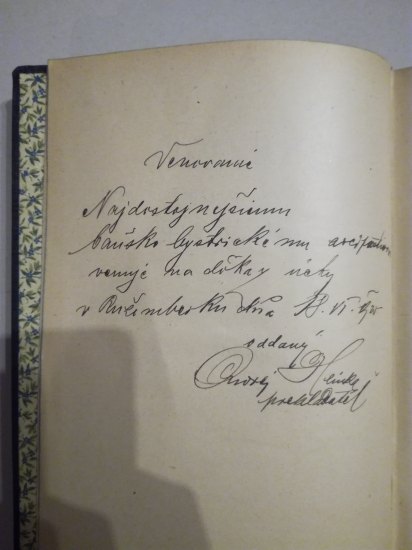 Venovanie
Najdôstojnejšiemu
bansko bystrickému
venuje na dôkaz úcty
v Ružomberku dňa 13. VI.
oddaný
Andrej Hlinka
prekladateľ